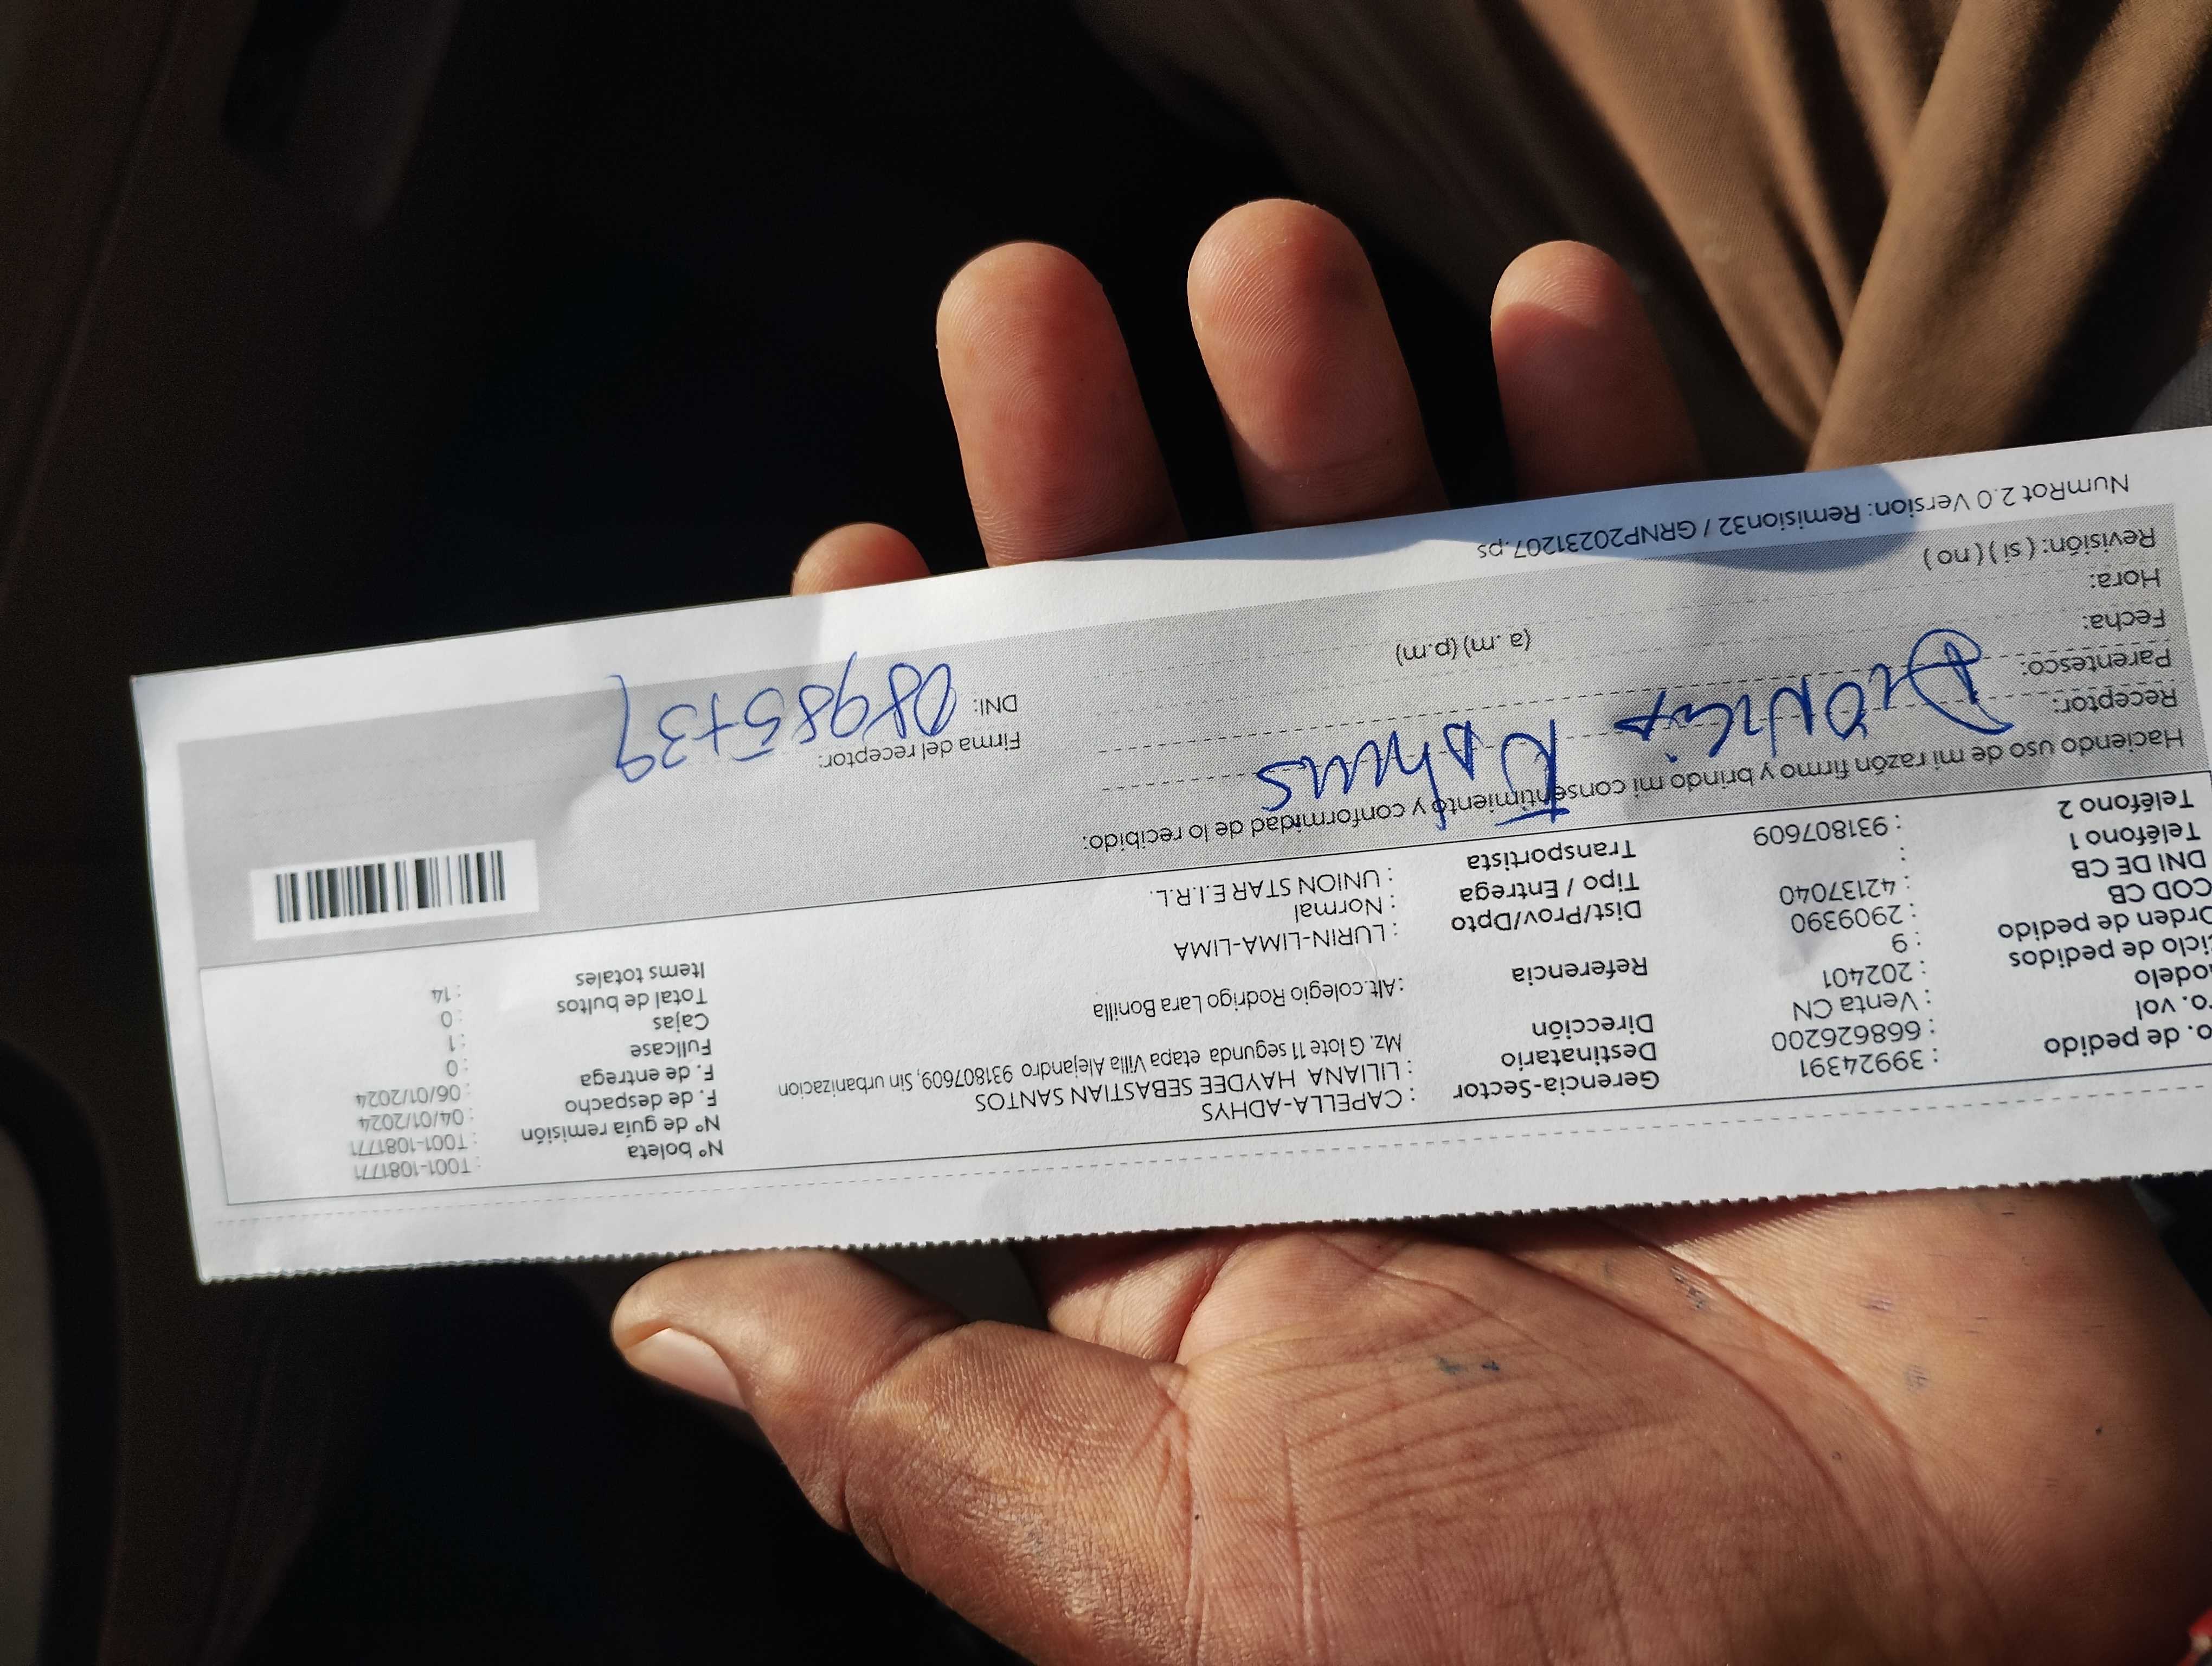 o. de pedido : 39924391
o. vol : 668626200
odelo : Venta CN
iclo de pedidos : 202401
Orden de pedido : 9
COD CB : 2909390
DNI DE CB : 42137040
Teléfono 1 :
Teléfono 2 : 931807609
Gerencia-Sector : CAPELLA-ADHYS
Destinatario : LILIANA HAYDEE SEBASTIAN SANTOS
Dirección Mz. G lote 11 segunda etapa Villa Alejandro 931807609, Sin urbanizacion
Referencia :Alt.colegio Rodrigo Lara Bonilla
Dist/Prov/Dpto : LURIN-LIMA-LIMA
Tipo / Entrega : Normal
Transportista : UNION STAR E.I.R.L.
Nº boleta : T001-1081771
Nº de guía remisión : T001-1081771
F. de despacho : 04/01/2024
F. de entrega : 06/01/2024
Fullcase : 0
Cajas : 1
Total de bultos : 0
Items totales : 14
Haciendo uso de mi razón firmo y brindo mi consentimiento y conformidad de lo recibido:
Receptor:
Parentesco:
Fecha:
Hora: (a .m) (p.m)
Revisión: ( si ) ( no )
Firma del receptor:
DNI: 08985739
NumRot 2.0 Version: Remision32 / GRNP20231207.ps